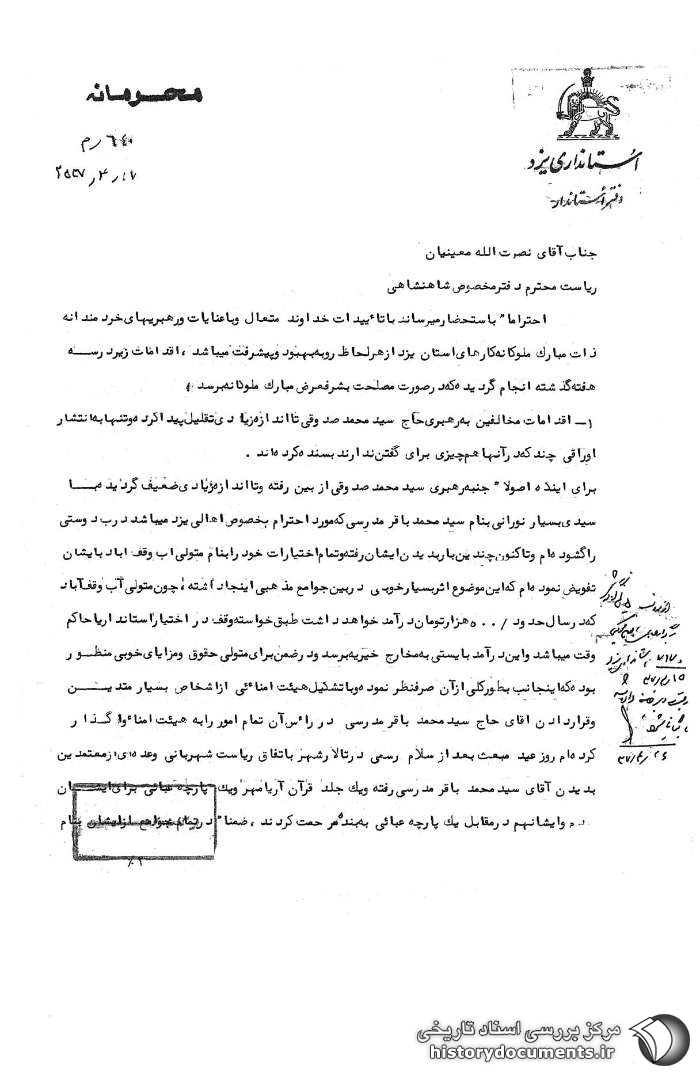 محرمانه
۶۴۰ رم
۲۵۳۷٫۴٫۱۷
استانداری یزد
دفتر استاندار
جناب آقای نصرت الله معینیان
ریاست محترم دفتر مخصوص شاهنشاهی
احتراما" باستحضار میرساند با تائیدات خداوند متعال و با عنایات و رهبریهای خردمندانه
ذات مبارك ملوکانه کارهای استان یزد از هر لحاظ رو به بهبود و پیشرفت میباشد ، اقدامات زیر در سه
هفته گذشته انجام گردیده که در صورت مصلحت بشرفعرض مبارك ملوکانه برسد :
۱ــ اقدامات مخالفین به رهبری حاج سید محمد صدوقی تا اندازه زیادی تقلیل پیدا کرده و تنها به انتشار
اوراقی چند که در آنها هم چیزی برای گفتن ندارند بسنده کرده اند .
برای اینکه اصولا" جنبه رهبری سید محمد صدوقی از بین رفته و تا اندازه زیادی ضعیف گردیده با
سیدی بسیار نورانی بنام سید محمد باقر مدرسی که مورد احترام بخصوص اهالی یزد میباشد درب دوستی
را گشوده ام و تاکنون چندین بار بدیدن ایشان رفته و تمام اختیارات خود را بنام متولی اب وقف اباد بایشان
تفویض نموده ام که این موضوع اثر بسیار خوبی در بین جوامع مذهبی ایجاد داشته ؛ چون متولی آب وقف آباد
که در سال حدود ۵۰۰/. هزار تومان درآمد خواهد داشت طبق خواسته وقف در اختیار استاندار یا حاکم
وقت میباشد و این درآمد بایستی به مخارج خیریه برسد و در ضمن برای متولی حقوق و مزایای خوبی منظور
بوده که اینجانب بطور کلی از آن صرفنظر نموده و با تشکیل هیئت امنائی از اشخاص بسیار متدین
و قرار دادن اقای حاج سید محمد باقر مدرسی در رائس آن تمام امور را به هیئت امناء واگذار
کرده ام روز عید مبعث بعد از سلام رسمی در تالار شهر باتفاق ریاست شهربانی و عده ای از معتمدین
بدیدن آقای سید محمد باقر مدرسی رفته و یك جلد قرآن آریامهر و یك پارچه عبائی برای ایشان
دم و ایشانهم در مقابل یك پارچه عبائی به بنده مرحمت کردند ، ضمنا" در تمام جوامع از ایشان بنام
مرکز بررسی اسناد تاریخی
historydocuments.ir